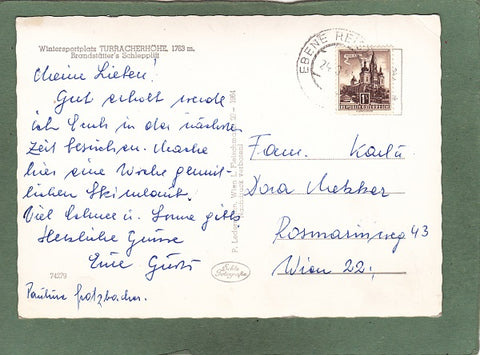 Wintersportplatz TURRACHERHÖHE, 1763 m.
Brandstätter's Schlepplift
Meine Lieben!
Gut erholt werde
ich Euch in der nächsten
Zeit besuchen. Mache
hier eine Woche gemüt-
lichen Skiurlaub.
Viel Schnee u. Sonne gibts
Herzliche Grüsse
Eure Gusti
Pauline
74279
P. Ledermann, Wien I, Fleischmarkt 20 - 1961
Echte Fotografie
EBENE REI
REPUBLIK ÖSTERREICH
Fam. Karl u.
Dora Mekker
Rosmarinweg 43
Wien 22.